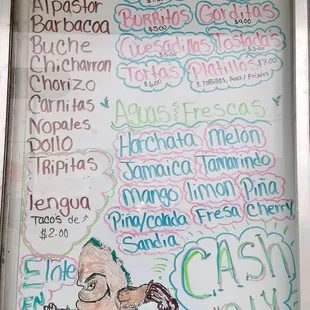 Alpastor
Barbacoa
Buche
Chicharron
Chorizo
Carnitas
Nopales
Pollo
Tripitas
lengua
Tacos de
$2.00
Elote
EN
Burritos Gorditas
$5.00 $4.00
Quesadillas Tostadas
Tortas Platillos $7.00
$6.00
Aguas Frescas
Horchata Melón
Jamaica Tamarindo
mango limon Piña
Piña/colada Fresa Cherry
Sandia
CASH